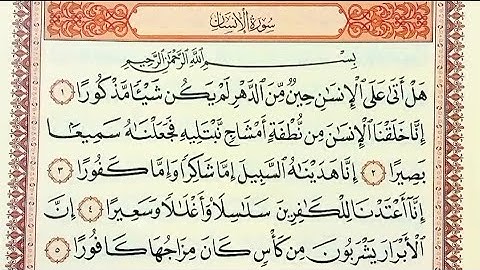 سُورَةُ الْإِنسَانِ
بِسْمِ اللَّهِ الرَّحْمَٰنِ الرَّحِيمِ
هَلْ أَتَىٰ عَلَى الْإِنسَٰنِ حِينٌ مِّنَ الدَّهْرِ لَمْ يَكُن شَيْـًٔا مَّذْكُورًا ١
إِنَّا خَلَقْنَا الْإِنسَٰنَ مِن نُّطْفَةٍ أَمْشَاجٍ نَّبْتَلِيهِ فَجَعَلْنَٰهُ سَمِيعًۢا
بَصِيرًا ٢ إِنَّا هَدَيْنَٰهُ السَّبِيلَ إِمَّا شَاكِرًا وَإِمَّا كَفُورًا ٣
إِنَّآ أَعْتَدْنَا لِلْكَٰفِرِينَ سَلَٰسِلَا۟ وَأَغْلَٰلًا وَسَعِيرًا ٤ إِنَّ
الْأَبْرَارَ يَشْرَبُونَ مِن كَأْسٍ كَانَ مِزَاجُهَا كَافُورًا ٥